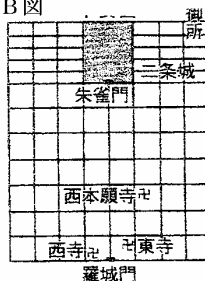 B図
御所
二条城
朱雀門
西本願寺卍
西寺卍
卍東寺
羅城門